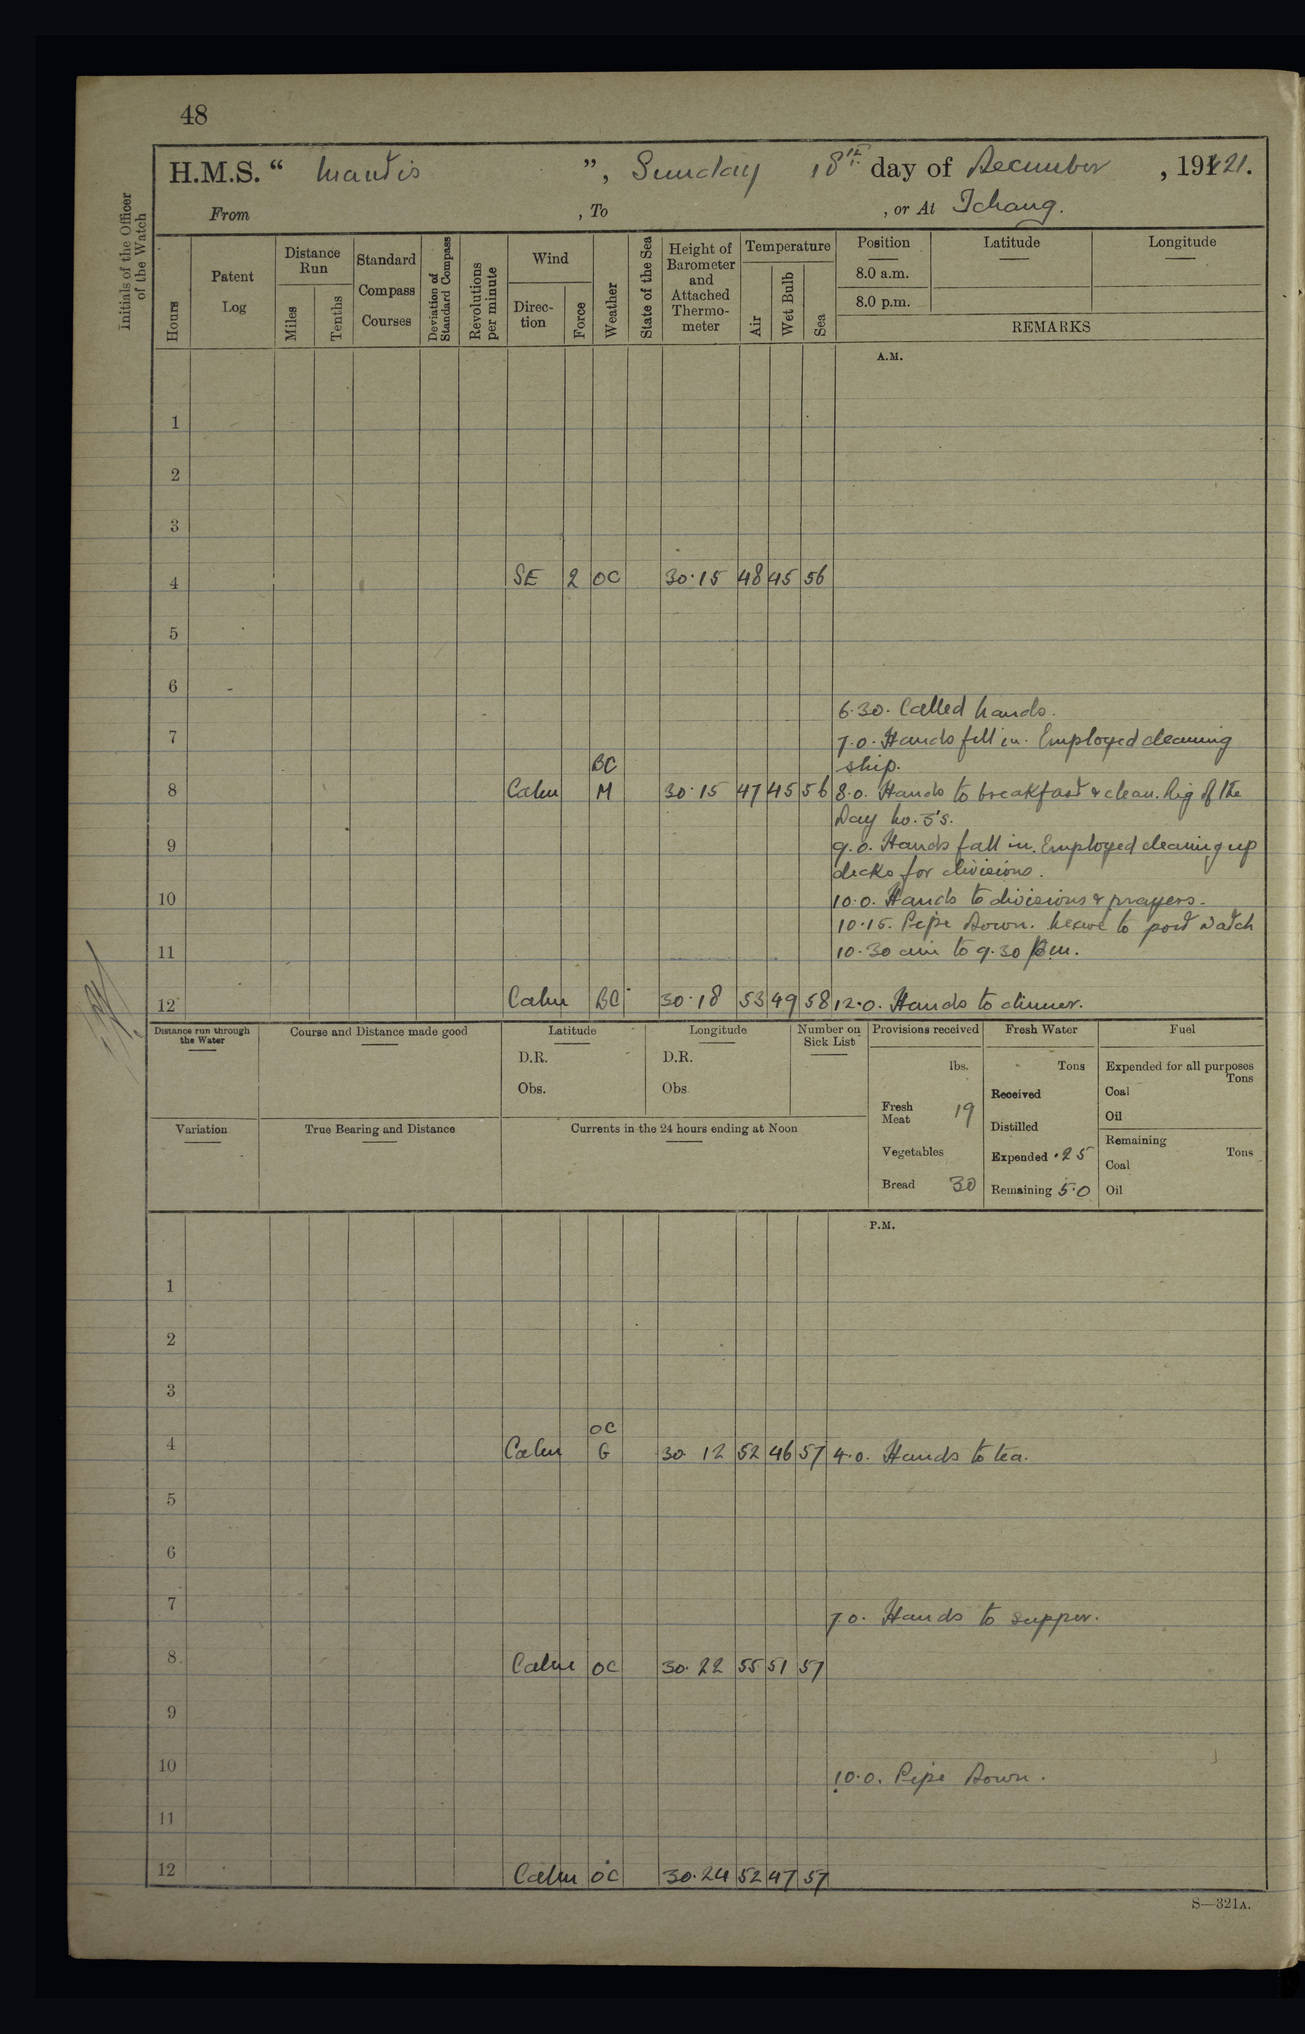 48
H.M.S. “ Mantis ”, Sunday 18th day of December , 1921.
From , To , or At Ichang.
Initials of the Officer of the Watch
Hours
Patent Log
Distance Run
Miles
Tenths
Standard Compass Courses
Deviation of Standard Compass
Revolutions per minute
Wind
Direc-tion
Force
Weather
State of the Sea
Height of Barometer and Attached Thermo-meter
Temperature
Air
Wet Bulb
Sea
Position
8.0 a.m.
8.0 p.m.
Latitude
Longitude
REMARKS
A.M.
1
2
3
4 SE 2 OC 30.15 48 45 56
5
6
6.30. Called hands.
7 7.0. Hands fell in. Employed cleaning
BC ship.
8 Calm M 30.15 47 45 56 8.0. Hands to breakfast & clean. Rig of the
Day No. 5's.
9 9.0. Hands fall in. Employed cleaning up
decks for divisions.
10 10.0. Hands to divisions & prayers.
10.15. Pipe Down. Leave to port watch
11 10.30 am to 9.30 pm.
12 Calm BC 30.18 53 49 58 12.0. Hands to dinner.
Distance run through the Water
Course and Distance made good
Latitude
D.R.
Obs.
Longitude
D.R.
Obs
Number on Sick List
Provisions received
lbs.
Fresh Meat 19
Vegetables
Bread 30
Fresh Water
Tons
Received
Distilled
Expended .25
Remaining 5.0
Fuel
Expended for all purposes
Tons
Coal
Oil
Remaining
Tons
Coal
Oil
Variation
True Bearing and Distance
Currents in the 24 hours ending at Noon
P.M.
1
2
3
OC
4 Calm G 30.12 52 46 57 4.0. Hands to tea.
5
6
7 7.0. Hands to supper.
8 Calm OC 30.22 55 51 57
9
10 10.0. Pipe Down.
11
12 Calm OC 30.24 52 47 57
S—321A.